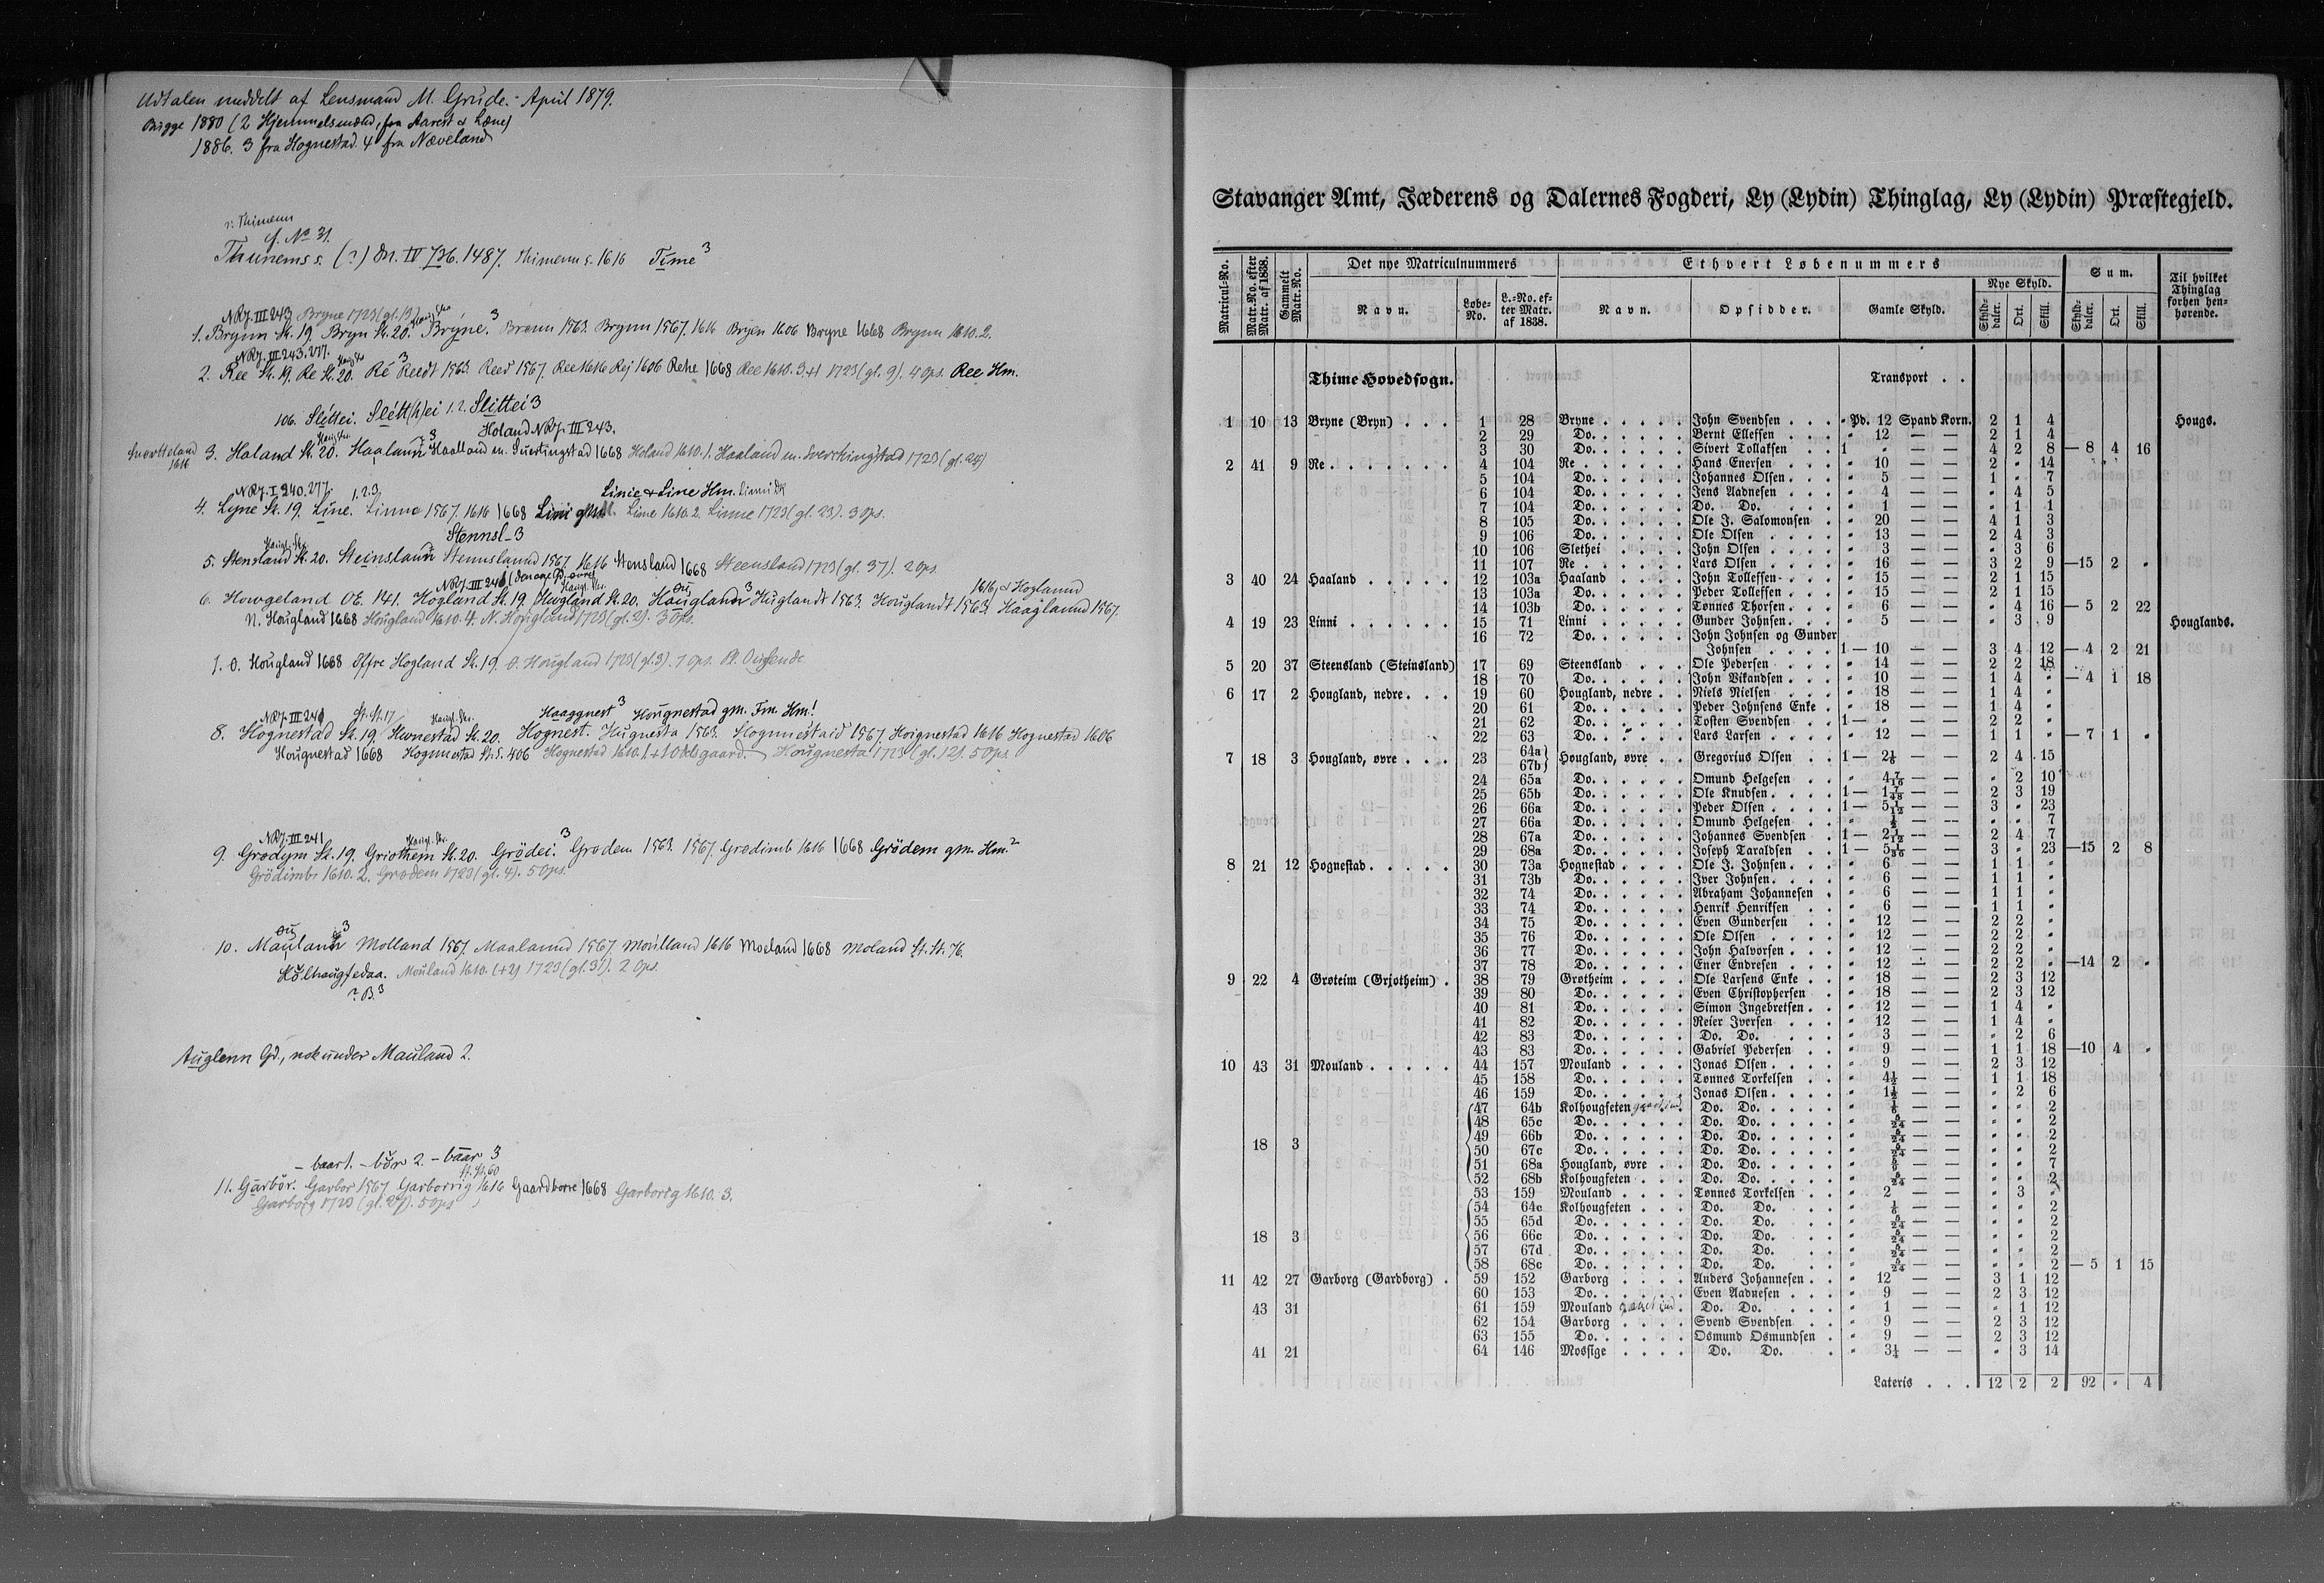 Udtalen meddelt af Lensmand M. Grude. - April 1879.
Bugge 1880 (2 Hjemmelsmænd, fra Aarest & Læne)
1886. 3 fra Hognestad. 4 fra Næveland
ɔ: Thimenn
cf. No 31.
Thunems s. (?) Dn. IV 736. 1487. Thimenn s. 1616 Time 3
NRJ. III 243 Bryne 1723 (gl. 13)
1. Brynn Sk. 19. Bryn Sk. 20. Brýne. 3 Brønn 1563. Brynn 1567. 1616 Bryen 1606 Bryne 1668 Brynn 1610. 2.
NRJ. III 243. 277.
2. Ree Sk. 19. Re Sk. 20. Ré 3 Reedt 1563. Reed 1567. Ree 1616 Rej 1606 Rehe 1668 Ree 1610. 3+1 1723 (gl. 9). 4 Ops. Ree Hm.
106. Sléttei. Slétt(h)ei 1. 2. Slittei 3
Holand NRJ. III 243.
3. Haland Sk. 20. Haalann 3 Haalland m. Suertingstad 1668 Holand 1610. 1. Haaland m. Sverchingstad 1723 (gl. 24)
1616
NRJ. I 240. 277. 1. 2. 3. Linie & Line Hm. Linni DK
4. Lyne Sk. 19. Line. Linne 1567. 1616 1668 Lini Line 1610. 2. Linne 1723 (gl. 23). 3 Ops.
Stennsl- 3
5. Stensland Sk. 20. Steinslann Stennslannd 1567. 1616 Stensland 1668 Steensland 1723 (gl. 37). 2 Ops.
NRJ. III 241 1616, & Hoglannd
6. Howgeland OE. 141. Hogland Sk. 19. Howgland Sk. 20. Hauglann 3 Huglandt 1563. Houglandt 1563. Haaglannd 1567.
N. Hougland 1668 Hougland 1610. 4. N. Hougland 1723 (gl. 2). 3 Ops.
7. O. Hougland 1668 Offre Hogland Sk. 19. O. Hougland 1723 (gl. 3). 7 Ops.
NRJ. III 241 St. St. 17 Haaggnest 3 Hougnestad gm. Fm. Hm!
8. Hognestad Sk. 19. Hwnestad Sk. 20. Hognest. Hugnesta 1563. Hognnestaid 1567 Hoignestad 1616 Hognestad 1606
Hougnestad 1668 Hognnestad St. S. 406 Hognestad 1610. 1+1 Ødegaard. Hougnesta 1723 (gl. 12). 5 Ops.
NRJ. III 241
9. Grødym Sk. 19. Griothem Sk. 20. Grödei. 3 Grødem 1563. 1567. Grødimb 1616 1668 Grödem gm. Hm. 2
Grödimbs 1610. 2. Grødem 1723 (gl. 4). 5 Ops.
10. Maulann 3 Molland 1567. Maalannd 1567 Moulland 1616 Moeland 1668 Moland St. St. 76.
Kölhaugfedaa. Mouland 1610. (+2) 1723 (gl. 31). 2 Ops.
? B. 3
Auglenn Gd., nok under Mauland 2.
- baar 1. - bör 2. - baar 3
St. St. 60
11. Garbör. Garbor 1567 Garborrig 1616 Gaardborre 1668 Garborrg 1610. 3.
Garborg 1723 (gl. 27). 5 Ops
Stavanger Amt, Jæderens og Dalernes Fogderi, Ly (Lydin) Thinglag, Ly (Lydin) Præstegjeld.
Matricul-No. Matr.-No. efter Matr. af 1838. Gammelt Matr.-No. Det nye Matriculnummers Ethvert Løbenummers Sum. Til hvilket Thinglag forhen henhørende.
Navn. Løbe-No. L.-No. efter Matr. af 1838. Navn. Opsidder. Gamle Skyld. Nye Skyld. Skylddaler. Ort. Skill. Skylddaler. Ort. Skill.
Thime Hovedsogn. Transport . .
1 10 13 Bryne (Bryn) . . . 1 28 Bryne . . . . . John Svendsen . . . " Pd. 12 Spand Korn. 2 1 4 Hougs.
2 29 Do. . . . . . Bernt Ellefsen . . . " 12 — — 2 1 4
3 30 Do. . . . . . Sivert Tollaksen . . 1 " — — 4 2 8 — 8 4 16
2 41 9 Re . . . . . . . 4 104 Re . . . . . . Hans Enersen . . . " 10 — — 2 " 14
5 104 Do. . . . . . Johannes Olsen . . . " 5 — — 1 " 7
6 104 Do. . . . . . Jens Aadnesen . . . " 4 — — " 4 5
7 104 Do. . . . . . Do. Do. . . . " 1 — — " 1 1
8 105 Do. . . . . . Ole J. Salomonsen . " 20 — — 4 1 3
9 106 Do. . . . . . Ole Olsen . . . . " 13 — — 2 4 3
10 106 Slethei . . . . John Olsen . . . . " 3 — — " 3 6
11 107 Re . . . . . . Lars Olsen . . . . " 16 — — 3 2 9 —15 2 "
3 40 24 Haaland . . . . . 12 103a Haaland . . . . John Tollefsen . . . " 15 — — 2 1 15
13 103a Do. . . . . . Peder Tollefsen . . . " 15 — — 2 1 15
14 103b Do. . . . . . Tønnes Thorsen . . . " 6 — — " 4 16 — 5 2 22
4 19 23 Linni . . . . . . 15 71 Linni . . . . . Gunder Johnsen . . . " 5 — — " 3 9 Houglands.
16 72 Do. . . . . . John Johnsen og Gunder
Johnsen . . . . 1 — 10 — — 3 4 12 — 4 2 21
5 20 37 Steensland (Steinsland) 17 69 Steensland . . . Ole Pedersen . . . " 14 — — 2 2 18
18 70 Do. . . . . . John Vikandsen . . . " 10 — — 1 4 " — 4 1 18
6 17 2 Hougland, nedre . . . 19 60 Hougland, nedre . . Niels Nielsen . . . " 18 — — 1 4 "
20 61 Do. . . . . . Peder Johnsens Enke . " 18 — — 1 4 "
21 62 Do. . . . . . Tosten Svendsen . . 1 — " — — 2 2 "
22 63 Do. . . . . . Lars Larsen . . . . " 12 — — 1 1 " — 7 1 "
7 18 3 Hougland, øvre . . . 23 64a 67b} Hougland, øvre . . Gregorius Olsen . . 1 — 2⅙ — — 2 4 15
24 65a Do. . . . . . Omund Helgesen . . " 4 7/16 — — " 2 10
25 65b Do. . . . . . Ole Knudsen . . . . 1 — 1 7/48 — — 2 3 19
26 66a Do. . . . . . Peder Olsen . . . . 1 — 5 1/12 — — 3 " 23
27 66a Do. . . . . . Omund Helgesen . . " ½ — — " " 7
28 67a Do. . . . . . Johannes Svendsen . 1 — 2 1/12 — — 2 4 7
29 68a Do. . . . . . Joseph Taraldsen . . 1 — 5 1/36 — — 3 " 23 —15 2 8
8 21 12 Hognestad . . . . . 30 73a Hognestad . . . . Ole J. Johnsen . . . " 6 — — 1 1 "
31 73b Do. . . . . . Iver Johnsen . . . . " 6 — — 1 1 "
32 74 Do. . . . . . Abraham Johannesen . " 6 — — 1 1 "
33 74 Do. . . . . . Henrik Henriksen . . " 6 — — 1 1 "
34 75 Do. . . . . . Even Gundersen . . " 12 — — 2 2 "
35 76 Do. . . . . . Ole Olsen . . . . " 12 — — 2 2 "
36 77 Do. . . . . . John Halvorsen . . . " 12 — — 2 2 "
37 78 Do. . . . . . Ener Endresen . . . " 12 — — 2 2 " —14 2 "
9 22 4 Groteim (Grjotheim) . 38 79 Grotheim . . . . Ole Larsens Enke . . " 18 — — 2 3 12
39 80 Do. . . . . . Even Christophersen . " 18 — — 2 3 12
40 81 Do. . . . . . Simon Ingebretsen . . " 12 — — 1 4 "
41 82 Do. . . . . . Reier Iversen . . . " 12 — — 1 4 "
42 83 Do. . . . . . Do. Do. . . . " 3 — — " 2 6
43 83 Do. . . . . . Gabriel Pedersen . . " 9 — — 1 1 18 —10 4 "
10 43 31 Mouland . . . . . 44 157 Mouland . . . . Jonas Olsen . . . . " 9 — — 2 3 12
45 158 Do. . . . . . Tønnes Torkelsen . . " 4½ — — 1 1 18
46 159 Do. . . . . . Jonas Olsen . . . . " 1½ — — " 2 6
{47 64b Kolhougfeten Do. Do. . . . . " ⅙ — — " " 2
48 65c Do. . . . . . Do. Do. . . . . " 5/24 — — " " 2
18 3 49 66b Do. . . . . . Do. Do. . . . . " 5/24 — — " " 2
50 67c Do. . . . . . Do. Do. . . . . " 5/24 — — " " 2
51 68a Hougland, øvre . . Do. Do. . . . . " — — " " 7
52 68b Kolhougfeten . . . Do. Do. . . . . " 5/24 — — " " 2
53 159 Mouland . . . . Tønnes Torkelsen . . " 2 — — " 3 "
{54 64c Kolhougfeten . . . Do. Do. " ⅙ — — " " 2
55 65d Do. . . . . . Do. Do. " 5/24 — — " " 2
18 3 56 66c Do. . . . . . Do. Do. " 5/24 — — " " 2
57 67d Do. . . . . . Do. Do. " 5/24 — — " " 2
58 68c Do. . . . . . Do. Do. " 5/24 — — " " 2 — 5 1 15
11 42 27 Garborg (Gardborg) . 59 152 Garborg . . . . Anders Johannesen . . " 12 — — 3 1 12
60 153 Do. . . . . . Even Aadnesen . . . " 9 — — 2 3 12
43 31 61 159 Mouland Do. Do. . . . " 1 — — " 1 12
62 154 Garborg . . . . Svend Svendsen . . " 9 — — 2 3 12
63 155 Do. . . . . . Osmund Osmundsen . " 9 — — 2 3 12
41 21 64 146 Mossige . . . . Do. Do. . " 3¼ — — " 3 14
Lateris . . . 12 2 2 92 " 4